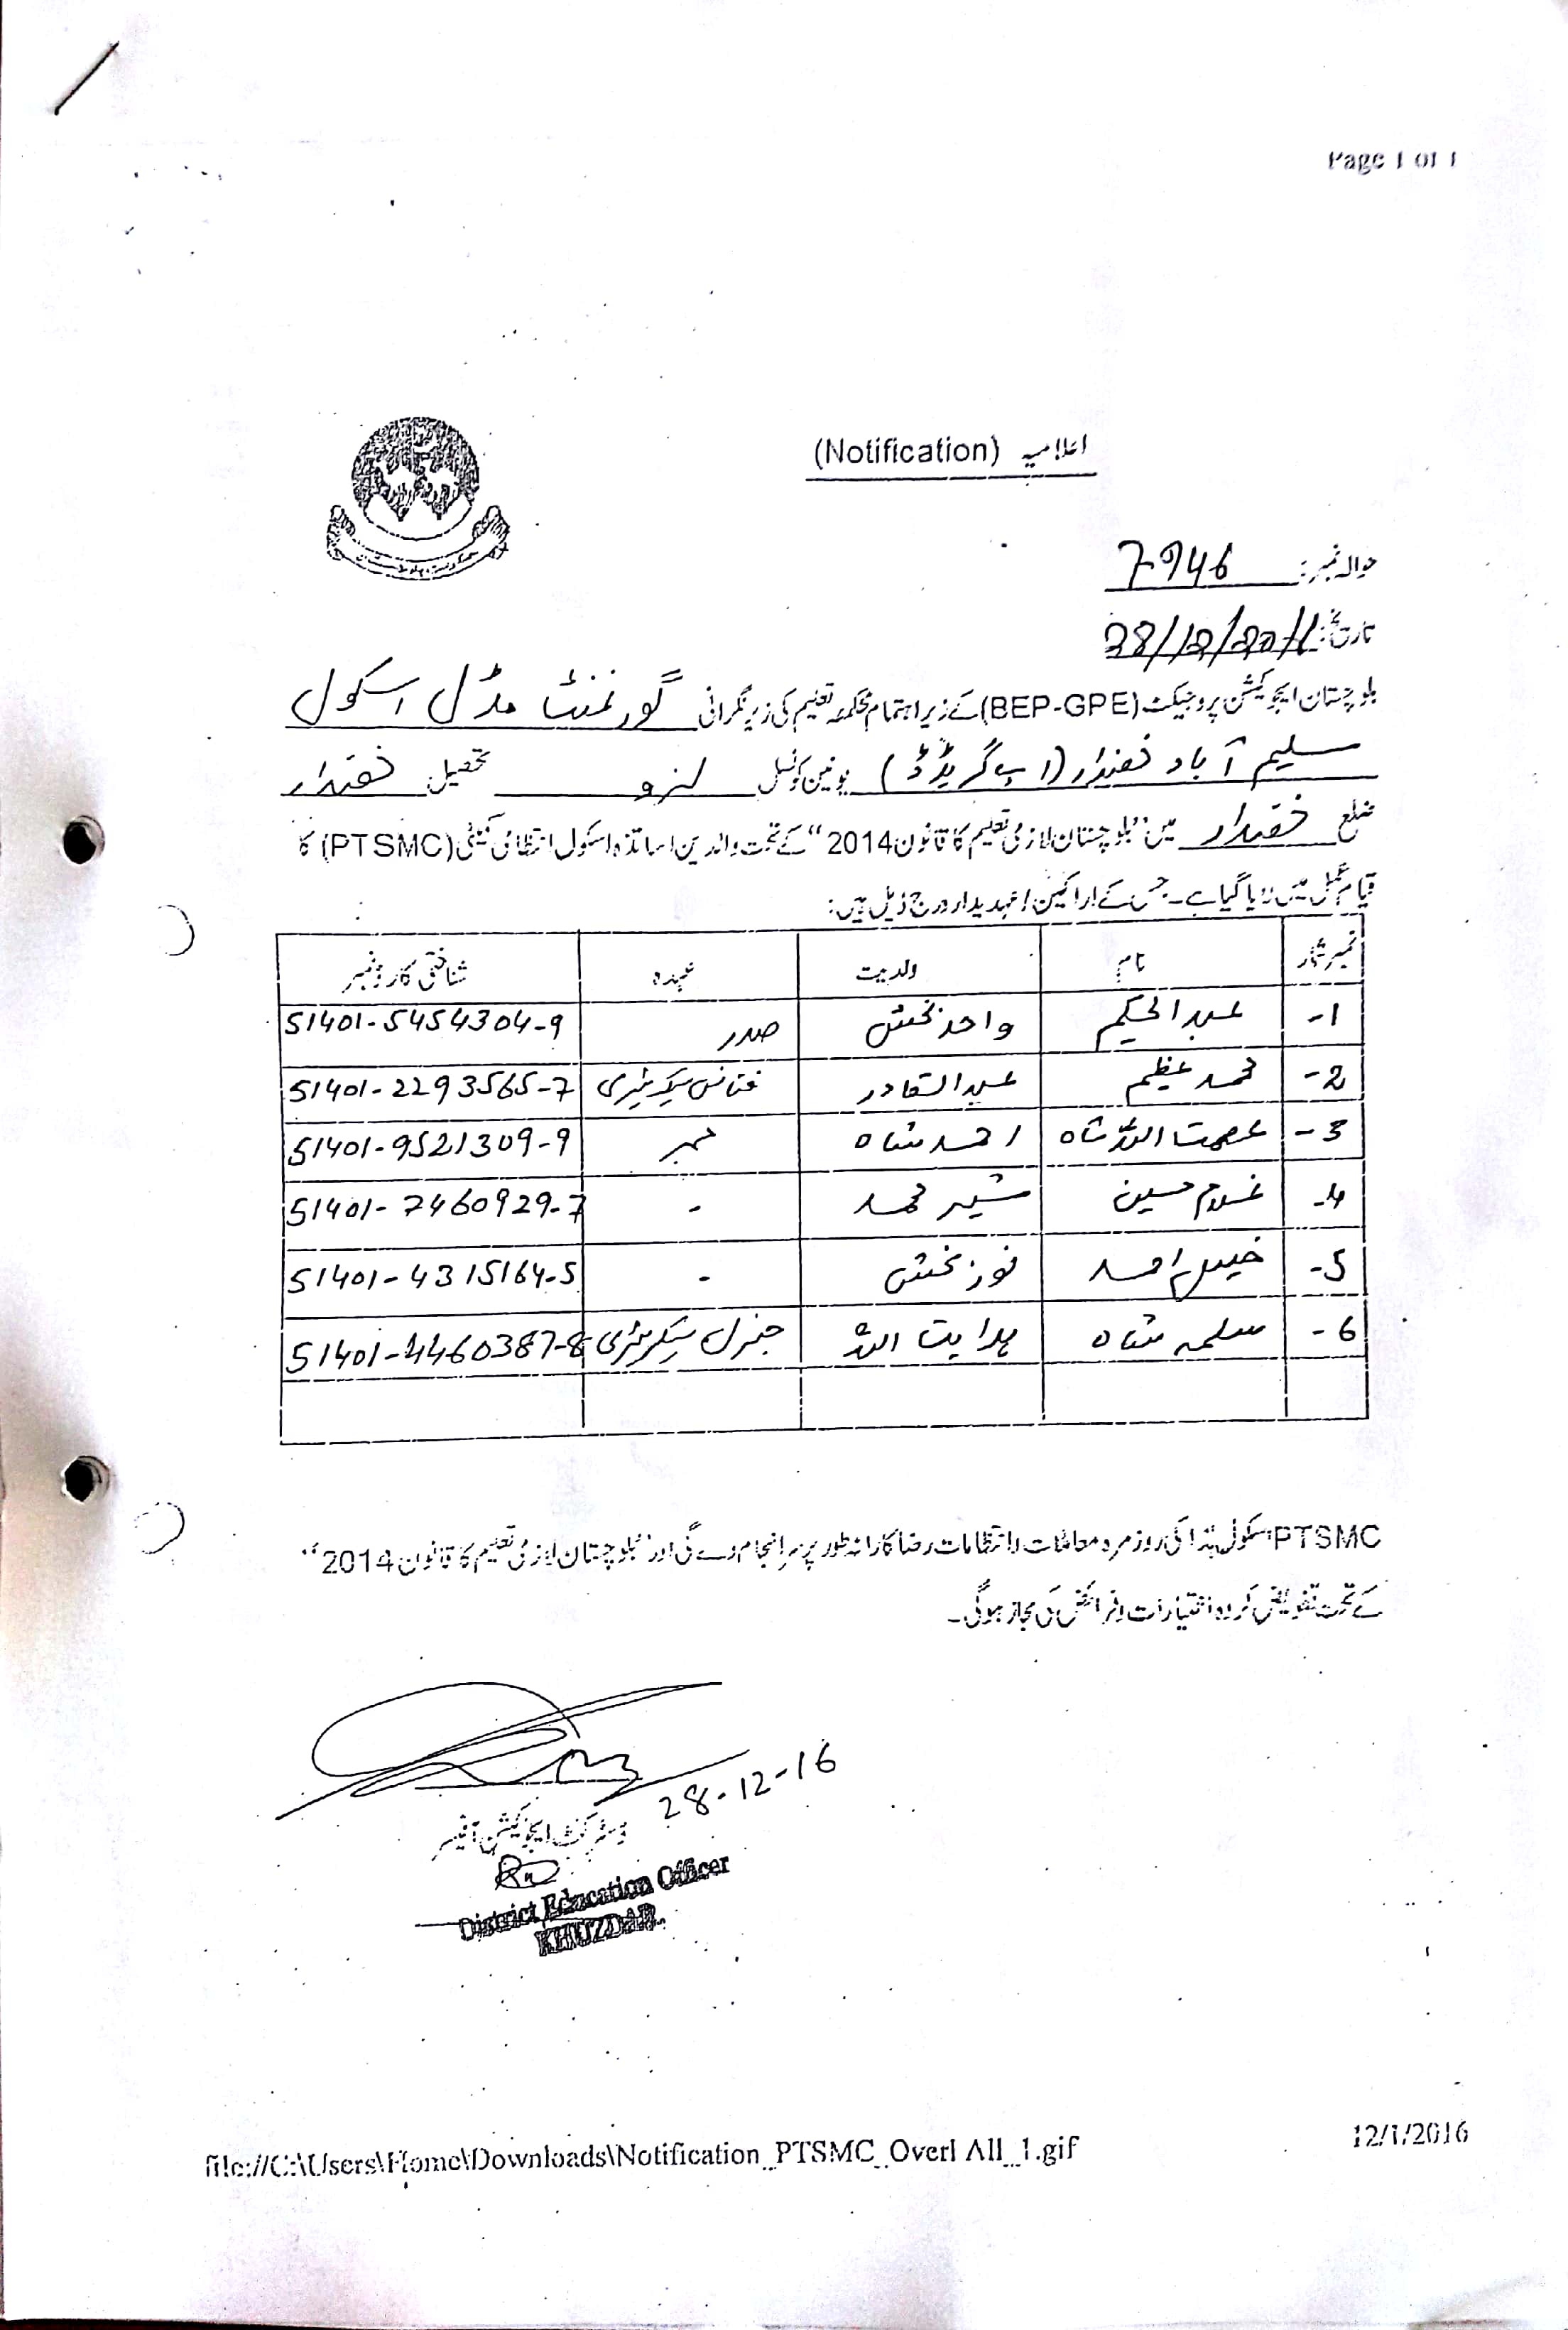 Page 1 of 1
اعلامیہ (Notification)
حوالہ نمبر: 7946
تاریخ: 28/12/2016
بلوچستان ایجوکیشن پروجیکٹ (BEP-GPE) کے زیر اہتمام محکمہ تعلیم کی زیر نگرانی گورنمنٹ مڈل اسکول
سلیم آباد خضدار (اپ گریڈڈ) یونین کونسل تحصیل خضدار
ضلع خضدار میں "بلوچستان لازمی تعلیم کا قانون 2014" کے تحت والدین اساتذہ اسکول انتظامی کمیٹی (PTSMC) کا
قیام عمل میں لایا گیا ہے۔ جس کے اراکین / عہدیدار درج ذیل ہیں:
نمبر شمار نام ولدیت عہدہ شناختی کارڈ نمبر
1- عبدالحکیم واحد بخش صدر 51401-5454304-9
2- محمد عظیم عبدالقادر فنانس سیکریٹری 51401-2293565-7
3- عصمت اللہ شاہ احمد شاہ ممبر 51401-9521309-9
4- غلام حسین شیر محمد - 51401-7460929-7
5- احمد نور بخش - 51401-4315164-5
6- سلمہ شاہ ہدایت اللہ جنرل سیکریٹری 51401-4460387-8
PTSMC اسکول ہٰذا کی روزمرہ معاملات و انتظامات رضا کارانہ طور پر سر انجام دے گی اور "بلوچستان لازمی تعلیم کا قانون 2014"
کے تحت تفویض کردہ اختیارات و فرائض کی مجاز ہوگی۔
28-12-16
ڈسٹرکٹ ایجوکیشن آفیسر
District Education Officer
KHUZDAR
file://C:\Users\Home\Downloads\Notification_PTSMC_Overl All_1.gif
12/1/2016